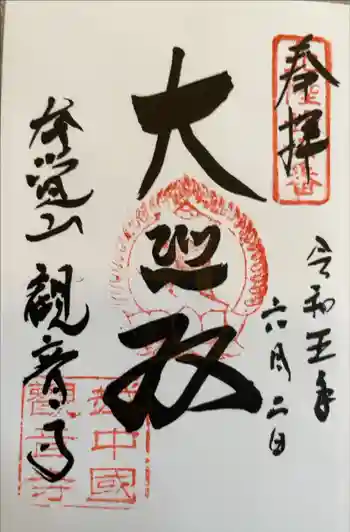 奉拝
令和五年
六月二日
大悲殿
覚山 観音寺
中國
觀音寺